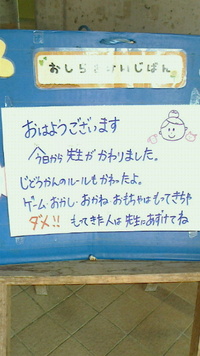 おしらせけいじばん
おはようございます
今日から先生がかわりました。
じどうかんのルールもかわったよ。
ゲーム・おかし・おかね・おもちゃはもってきちゃ
ダメ!! もってきた人は先生にあずけてね